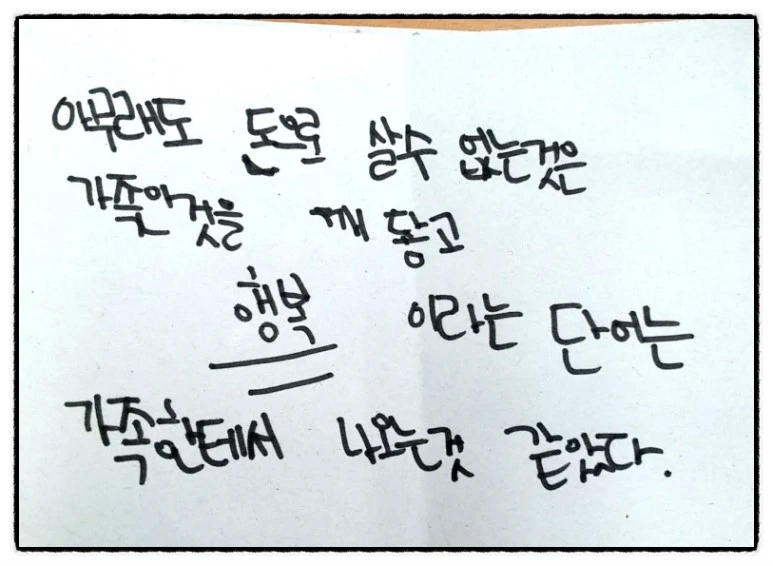 아무래도 돈으로 살수 없는것은
가족인것을 깨 닿고
행복 이라는 단어는
가족한테서 나오는것 같았다.